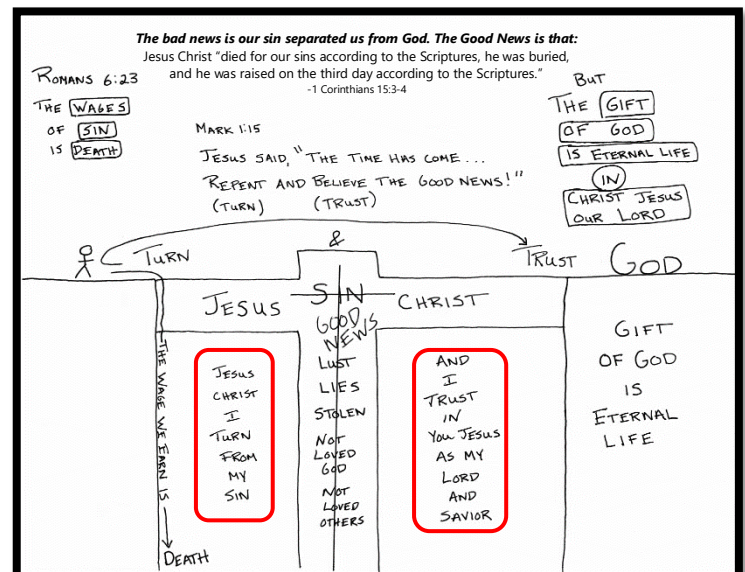 The bad news is our sin separated us from God. The Good News is that:
Jesus Christ “died for our sins according to the Scriptures, he was buried,
and he was raised on the third day according to the Scriptures.”
-1 Corinthians 15:3-4
ROMANS 6:23
THE WAGES
OF SIN
IS DEATH
MARK 1:15
JESUS SAID, "THE TIME HAS COME...
REPENT AND BELIEVE THE GOOD NEWS!"
(TURN) (TRUST)
BUT
THE GIFT
OF GOD
IS ETERNAL LIFE
IN
CHRIST JESUS
OUR LORD
TURN
&
TRUST
GOD
JESUS
SIN
CHRIST
GOOD
NEWS
LUST
LIES
STOLEN
NOT
LOVED
GOD
NOT
LOVED
OTHERS
THE WAGE WE EARN IS
DEATH
JESUS
CHRIST
I
TURN
FROM
MY
SIN
AND
I
TRUST
IN
YOU JESUS
AS MY
LORD
AND
SAVIOR
GIFT
OF GOD
IS
ETERNAL
LIFE